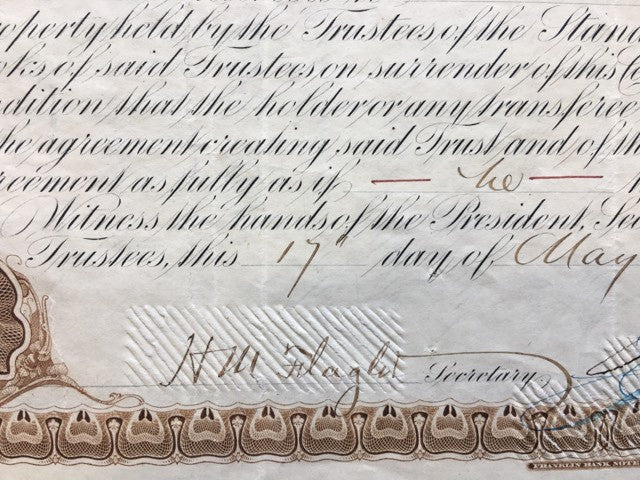 roperty held by the Trustees of the Stand
oks of said Trustees on surrender of this C
ndition that the holder or any transferee
he agreement creating said Trust and of th
reement as fully as if — he —
Witness the hands of the President, Sec
Trustees, this 17" day of May
H M Flagler Secretary,
FRANKLIN BANK NOTE